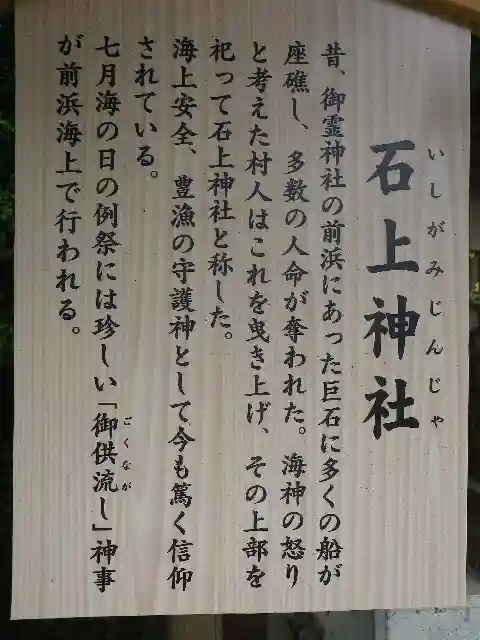 いしがみじんじゃ
石上神社
昔、御霊神社の前浜にあった巨石に多くの船が
座礁し、多数の人命が奪われた。海神の怒り
と考えた村人はこれを曳き上げ、その上部を
祀って石上神社と称した。
海上安全、豊漁の守護神として今も篤く信仰
されている。
七月海の日の例祭には珍しい「御供流し」神事
ごくなが
が前浜海上で行われる。